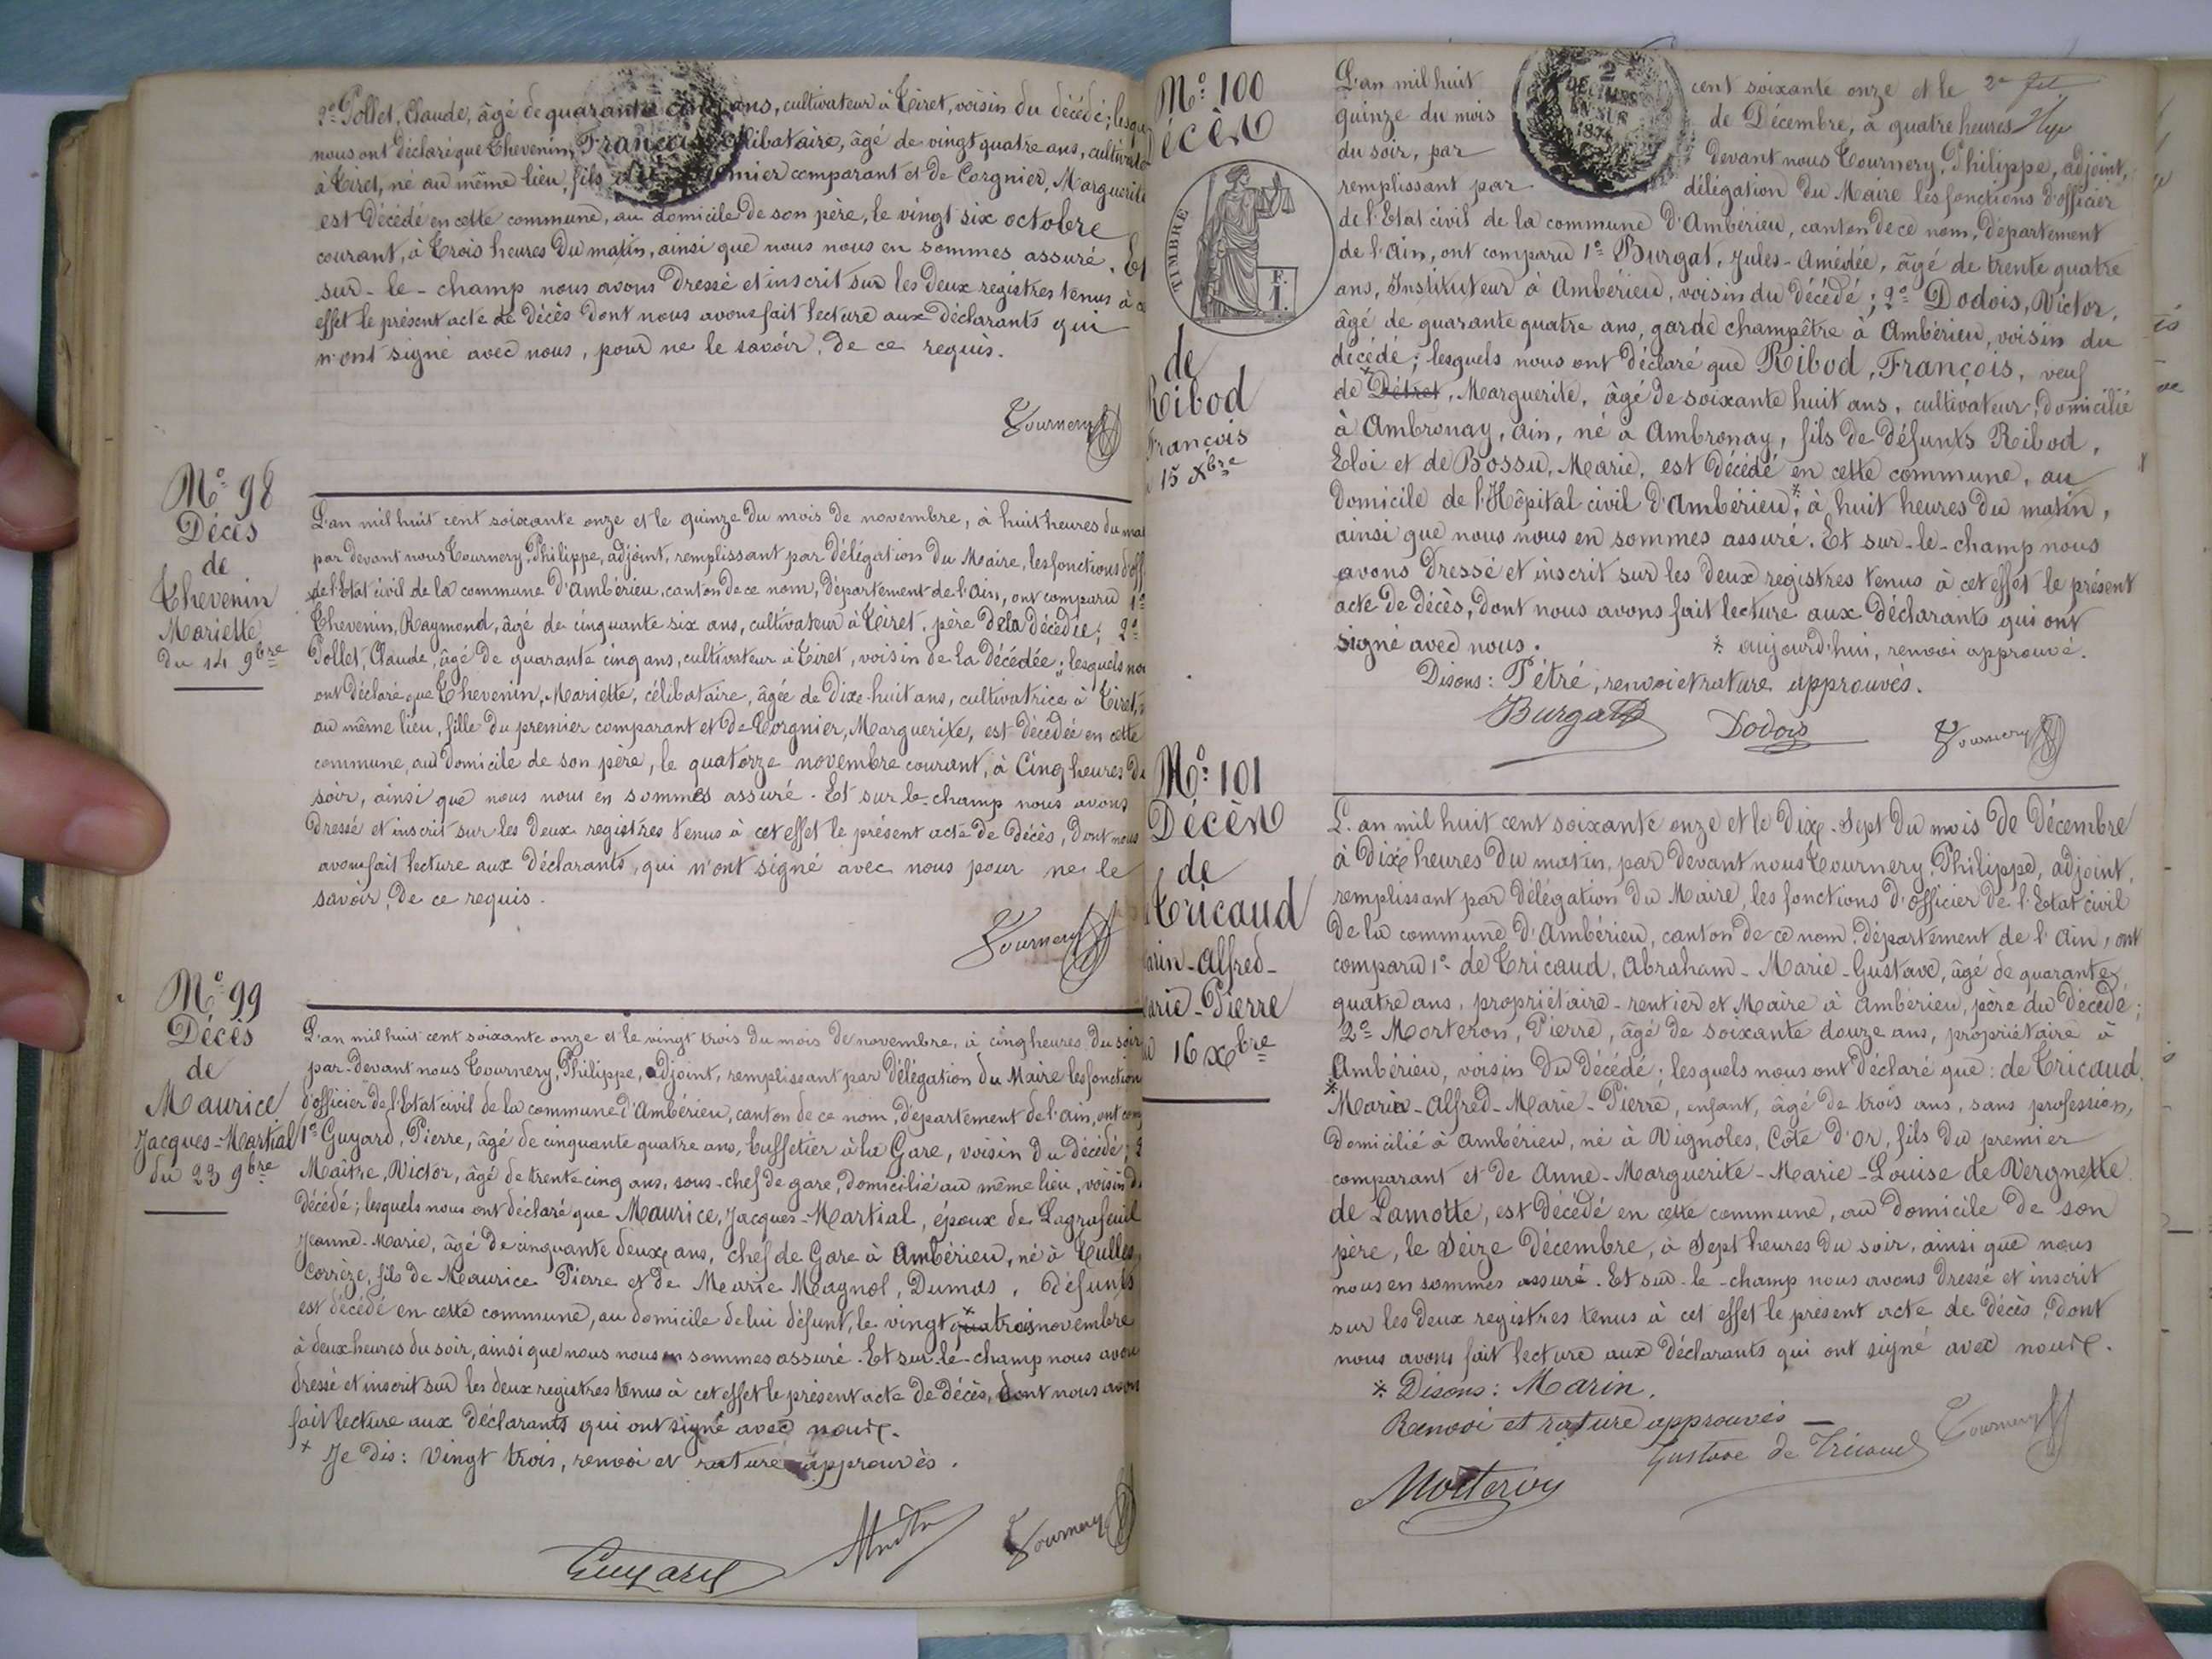 2º Pollet, Claude, âgé de quarante cinq ans, cultivateur à Tiret, voisin du décédé; lesque
nous ont déclaré que Thevenin, François, célibataire, âgé de vingt quatre ans, cultivate
à Tiret, né au même lieu, fils du premier comparant et de Corgnier, Marguerite
est décédé en cette commune, au domicile de son père, le vingt six octobre
courant, à trois heures du matin, ainsi que nous nous en sommes assuré. Et
sur-le-champ nous avons dressé et inscrit sur les deux registres tenus à c
effet le présent acte de décès dont nous avons fait lecture aux déclarants qui
n'ont signé avec nous, pour ne le savoir, de ce requis.
Tournery
Nº 98
Décès
de
Thevenin
Mariette
du 14 9bre
L'an mil huit cent soixante onze et le quinze du mois de novembre, à huit heures du mat
par devant nous Tournery, Philippe, adjoint, remplissant par délégation du Maire, les fonctions d'off
de l'Etat civil de la commune d'Ambérieu, canton de ce nom, département de l'Ain, ont comparu 1º
Thevenin, Raymond, âgé de cinquante six ans, cultivateur à Tiret, père de la décédée; 2º
Pollet, Claude, âgé de quarante cinq ans, cultivateur à Tiret, voisin de la décédée; lesquels nou
ont déclaré que Thevenin, Mariette, célibataire, âgée de dixe-huit ans, cultivatrice à Tiret,
au même lieu, fille du premier comparant et de Corgnier, Marguerite, est décédée en cette
commune, au domicile de son père, le quatorze novembre courant, à cinq heures du
soir, ainsi que nous nous en sommes assuré. Et sur le-champ nous avons
dressé et inscrit sur les deux registres tenus à cet effet le présent acte de décès, dont nous
avons fait lecture aux déclarants, qui n'ont signé avec nous pour ne le
savoir, de ce requis.
Tournery
Nº 99
Décès
de
Maurice
Jacques-Martial
du 23 9bre
L'an mil huit cent soixante onze et le vingt trois du mois de novembre, à cinq heures du soir
par-devant nous Tournery, Philippe, adjoint, remplissant par délégation du Maire les fonction
d'officier de l'Etat civil de la commune d'Ambérieu, canton de ce nom, département de l'ain, ont com
1º Guyard, Pierre, âgé de cinquante quatre ans, buffetier à la Gare, voisin du décédé; 2
Maître, Victor, âgé de trente cinq ans, sous-chef de gare, domicilié au même lieu, voisin d
décédé; lesquels nous ont déclaré que Maurice, Jacques-Martial, époux de Lagrafeuil
Jeanne-Marie, âgé de cinquante deux ans, chef de Gare à Ambérieu, né à Tulles,
Corrèze, fils de Maurice Pierre et de Marie Magnol, Dumas, défunts
est décédé en cette commune, au domicile de lui défunt, le vingt quatrois novembre
à deux heures du soir, ainsi que nous nous en sommes assuré. Et sur-le-champ nous avon
dressé et inscrit sur les deux registres tenus à cet effet le présent acte de décès, dont nous avon
fait lecture aux déclarants qui ont signé avec nous.
* Je dis: vingt trois, renvoi et rature approuvés.
Guyard
Maître
Tournery
Nº 100
écès
TIMBRE
F.
1.
de
Ribod
François
15 Xbre
2
1871
L'an mil huit cent soixante onze et le
quinze du mois de Décembre, à quatre heures
du soir, par devant nous Tournery, Philippe, adjoint,
remplissant par délégation du Maire les fonctions d'officier
de l'Etat civil de la commune d'Ambérieu, canton de ce nom, département
de l'Ain, ont comparu 1º Burgat, Jules-Amédée, âgé de trente quatre
ans, Instituteur à Ambérieu, voisin du décédé; 2º Dodois, Victor,
âgé de quarante quatre ans, garde champêtre à Ambérieu, voisin du
décédé; lesquels nous ont déclaré que Ribod, François, veuf
de * Détret, Marguerite, âgé de soixante huit ans, cultivateur, domicilié
à Ambronay, ain, né à Ambronay, fils de défunts Ribod,
Eloi et de Bossu, Marie, est décédé en cette commune, au
domicile de l'Hôpital civil d'Ambérieu*, à huit heures du matin,
ainsi que nous nous en sommes assuré. Et sur-le-champ nous
avons dressé et inscrit sur les deux registres tenus à cet effet le présent
acte de décès, dont nous avons fait lecture aux déclarants qui ont
signé avec nous. * aujourd'hui, renvoi approuvé.
Disons: Pétré, renvoi et rature approuvés.
Burgat
Dodois
Tournery
Nº 101
Décès
de
Tricaud
arin-Alfred-
arie-Pierre
16 Xbre
L'an mil huit cent soixante onze et le dix-sept du mois de Décembre
à dix heures du matin, par devant nous Tournery, Philippe, adjoint,
remplissant par délégation du Maire, les fonctions d'officier de l'Etat civil
de la commune d'Ambérieu, canton de ce nom, département de l'Ain, ont
comparu 1º de Tricaud, Abraham-Marie-Gustave, âgé de quarante
quatre ans, propriétaire-rentier et Maire à Ambérieu, père du décédé;
2º Morteron, Pierre, âgé de soixante douze ans, propriétaire à
Ambérieu, voisin du décédé; lesquels nous ont déclaré que: de Tricaud,
* Maria-Alfred-Marie-Pierre, enfant, âgé de trois ans, sans profession,
domicilié à Ambérieu, né à Vignoles, Côte d'Or, fils du premier
comparant et de Anne-Marguerite-Marie-Louise de Vergnette
de Lamotte, est décédé en cette commune, au domicile de son
père, le seize Décembre, à sept heures du soir, ainsi que nous
nous en sommes assuré. Et sur-le-champ nous avons dressé et inscrit
sur les deux registres tenus à cet effet le présent acte de décès, dont
nous avons fait lecture aux déclarants qui ont signé avec nous.
* Disons: Marin.
Renvoi et rature approuvés —
Gustave de Tricaud
Tournery
Morteron